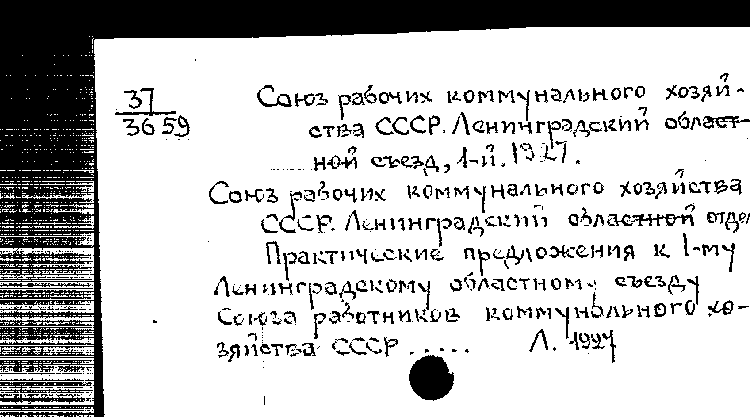 37
3659
Союз рабочих коммунального хозяй-
ства СССР. Ленинградский област-
ной съезд, 1-й. 1927.
Союз рабочих коммунального хозяйства
СССР. Ленинградский областной отдел
Практические предложения к 1-му
Ленинградскому областному съезду
Союза работников коммунального хо-
зяйства СССР ..... Л. 1927